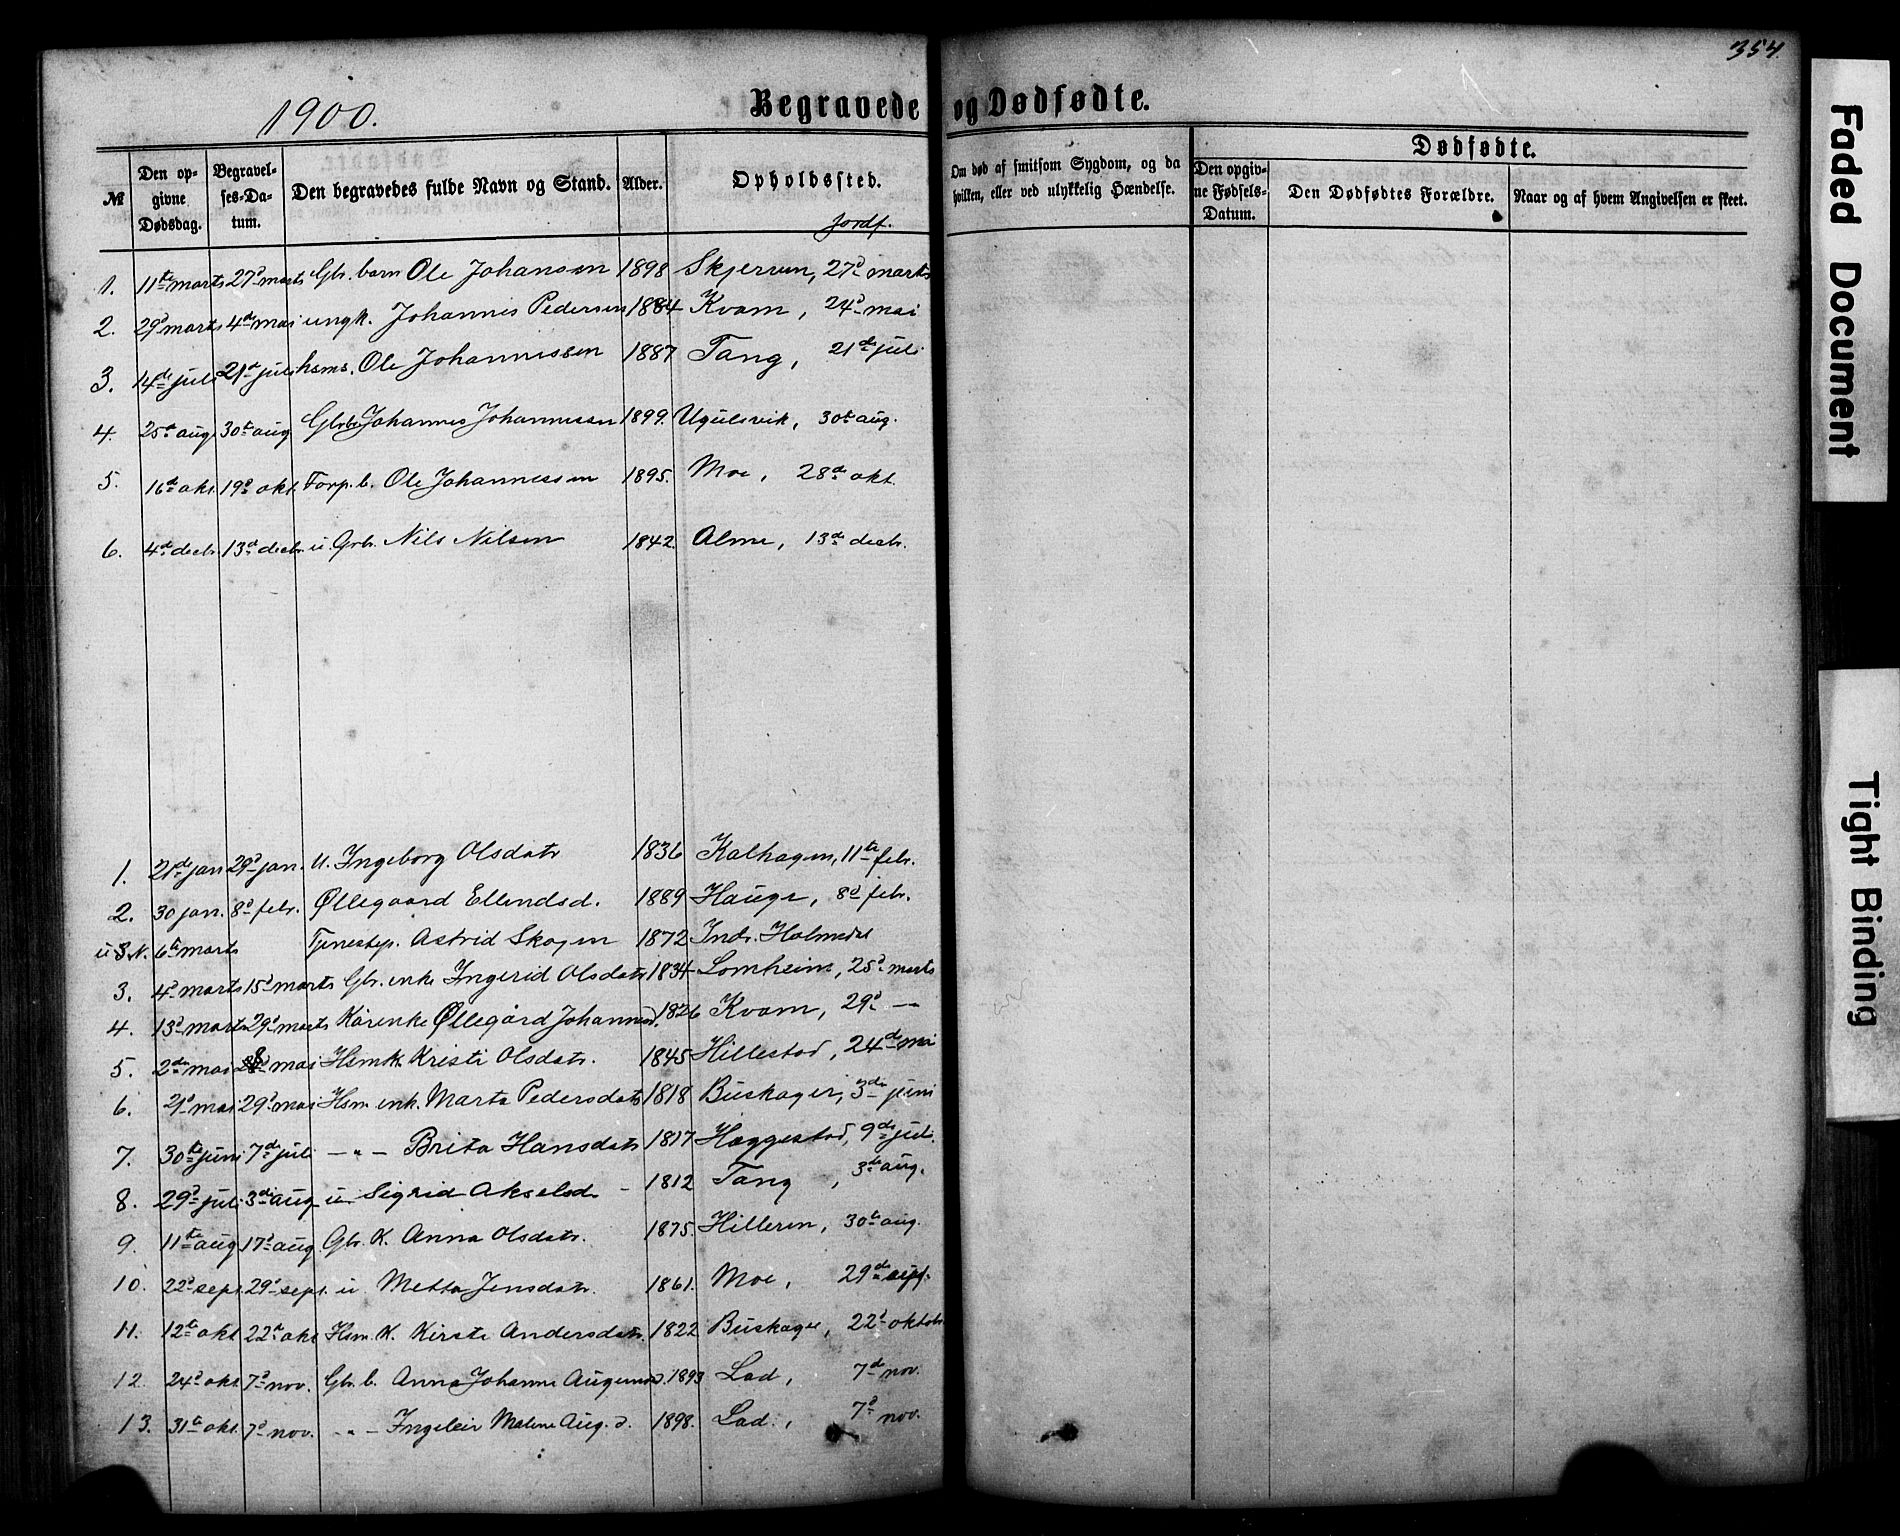 354.
1900.
Begravede og Dødfødte.
№ Den opgivne Dødsdag. Begravelses-Datum. Den begravedes fulde Navn og Stand. Alder. Opholdssted. Om død af smitsom Sygdom, og da hvilken, eller ved ulykkelig Hændelse. Dødfødte. Den opgivne Fødsels-Datum. Den Dødfødtes Forældre. Naar og af hvem Angivelsen er skeet.
Jordf.
1. 11te marts 27d marts Gbr. barn Ole Johansen 1898 Skjerven, 27d marts
2. 29d marts 4de mai ungk. Johannes Pedersen 1884 Kvam, 24d mai
3. 14de juli 21de juli hsms. Ole Johannessen 1887 Tang, 21de juli
4. 25te aug. 30te aug. Gbrb. Johannes Johannessen 1899. Ugulsvik, 30te aug.
5. 16de okt. 19d okt. Forp. b. Ole Johannessen 1895. Moe, 28de okt.
6. 4de decbr. 13de decbr. u. Grb. Nils Nilsen 1842. Alme, 13de decbr.
1. 21de jan. 29d jan. u. Ingeborg Olsdatr 1836 Kalhagen, 11te febr.
2. 30 jan. 8d febr. Øllegaard Ellendsd. 1889 Hauge, 8d febr.
u. N. 6te marts Tjenestep. Astrid Skogen 1872 Indr. Holmedal
3. 4d marts 15d marts Gbr. enke Ingerid Olsdatr 1834 Lomheim, 25d marts
4. 13d marts 29d marts Kårenke Øllegård Johannesd. 1826 Kvam, 29d —
5. 2den mai 8d mai Hsmk. Kristi Olsdatr. 1845 Hillestad, 24de mai
6. 21d mai 29d mai Hsm. enk. Marta Pedersdatr 1818 Buskager, 3die juni
7. 30te juni 7de juli —"— Brita Hansdatr 1817 Heggestad, 9de juli.
8. 29d juli 3die aug. u Sigrid Akselsd. - 1812 Tang, 3die aug.
9. 11te aug 17d aug. Gbr. K. Anna Olsdatr. 1875. Hilleren, 30te aug.
10. 22d sept. 29d sept. u. Metta Jensdatr. 1861. Moe, 29de sept.
11. 12te okt 22d okt Hsm. K. Kirste Andersdatr. 1822 Buskager, 22d oktobr
12. 24d okt. 7d nov. Gbr. b. Anna Johanne Augunsd. 1893 Lad, 7de nov.
13. 31te okt. 7d nov. —"— Ingeleiv Malene Aug. d. 1898. Lad., 7d nov.
Faded Document
Tight Binding